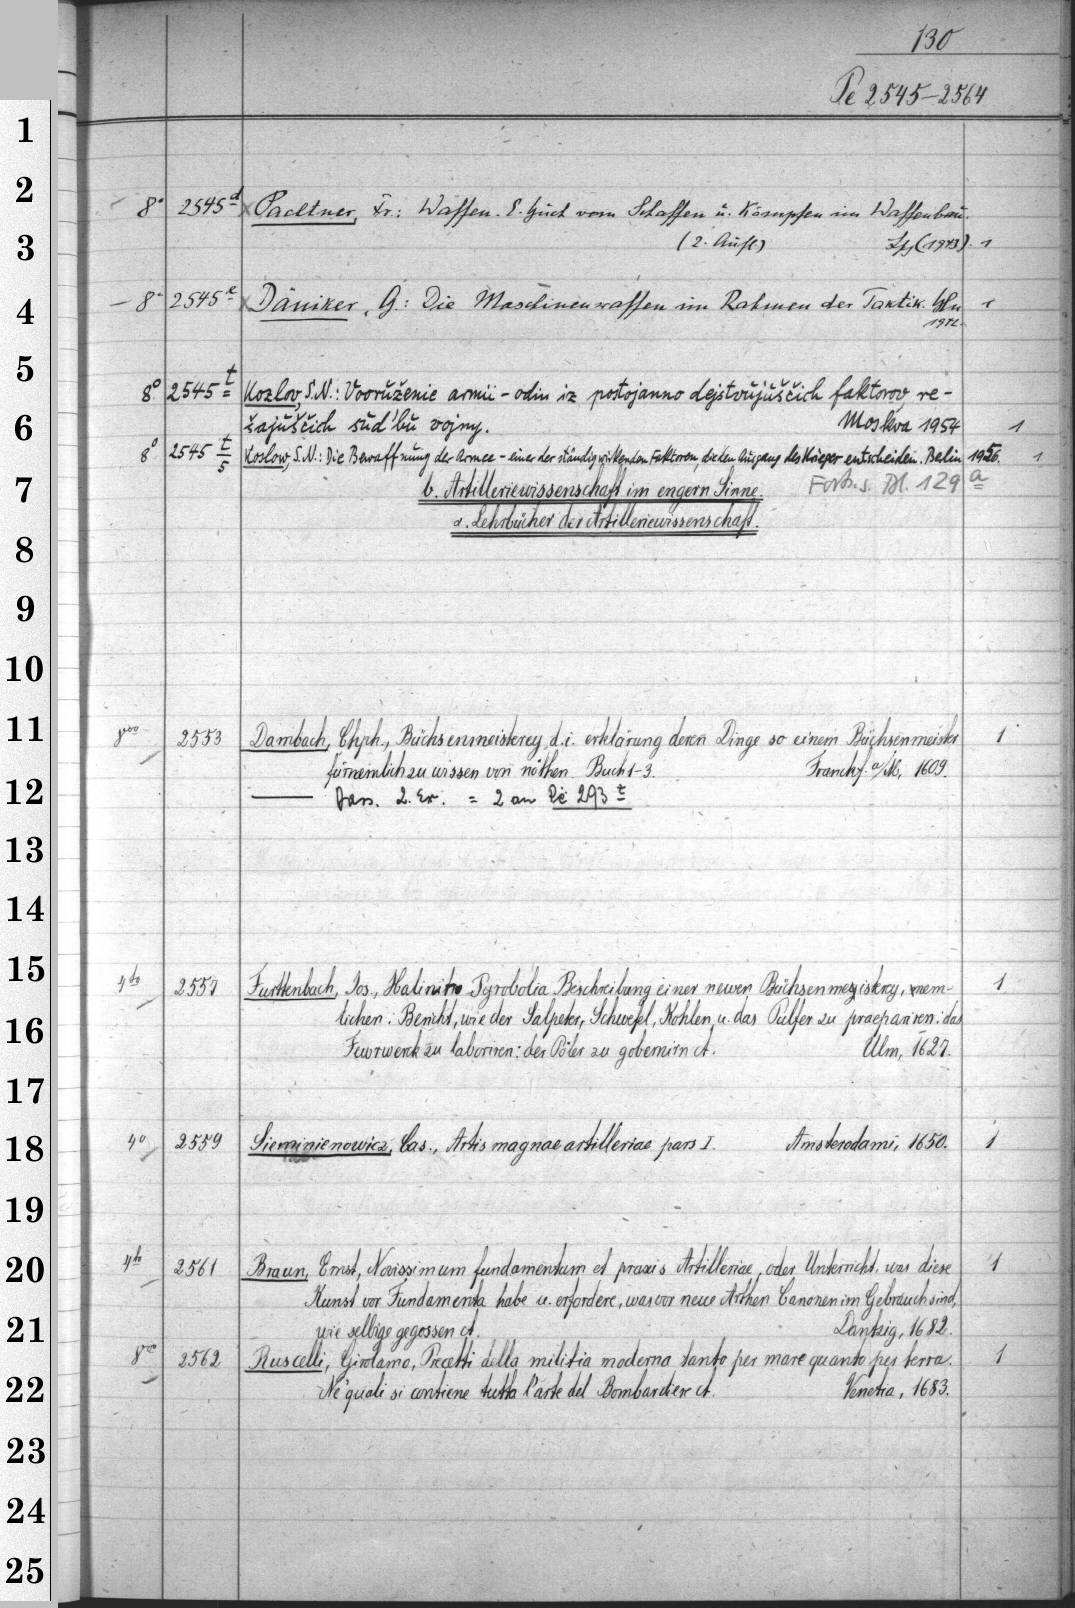 130
Pe 2545-2564
1
2
- 8° 2545 d x Pachtner, Fr.: Waffen. E. Buch vom Schaffen u. Kämpfen im Waffenbau.
3
(2. Aufl) Lpz (1943). 1
- 8° 2545 e x Däniker, G.: Die Maschinenwaffen im Rahmen der Taktik. Bln 1
4
1942.
5
8° 2545 t Kozlov, S.N.: Vooruženie armii - odin iz postojanno dejstvujuščich faktorov re-
6
šajuščich sud'bu vojny. Moskva 1954 1
8° 2545 t/5 Koslow, S.N.: Die Bewaffnung der Armee - einer der ständig wirkenden Faktoren, die den Ausgang des Krieges entscheiden. Berlin 1956. 1
7
b. Artilleriewissenschaft im engern Sinne. Forts. s. Bl. 129 a
α. Lehrbücher der Artilleriewissenschaft.
8
9
10
11
8vo 2553 Dambach, Chph., Büchsenmeisterey, d.i. erklärung deren Dinge so einem Büchsenmeister 1
fürnemlich zu wissen von nöthen. Buch 1-3. Franckf. a/M, 1609.
12
— Dass. 2. Ex. = 2 an Pe 293 t
13
14
15
4to 2557 Furttenbach, Jos., Halinitro Pyrobolia Beschreibung einer newen Büchsenmeysterey, nem- 1
16
lichen: Bericht, wie der Salpeter, Schwefel, Kohlen, u. das Pulfer zu praepariren: das
Fewrwerck zu laboriren: der Pöler zu gobernirn ct. Ulm, 1627.
17
18
4° 2559 Sieminienowicz, Cas., Artis magnae artilleriae pars I. Amsterodami, 1650. 1
19
20
4to 2561 Braun, Ernst, Novissimum fundamentum et praxis Artilleriae, oder Unterricht, was diese 1
Kunst vor Fundamenta habe u. erfordere, was vor neue Arthen Canonen im Gebrauch sind,
21
wie selbige gegossen ct. Dantzig, 1682.
8vo 2562 Ruscelli, Girolamo, Precetti della militia moderna tanto per mare quanto per terra. 1
22
Ne'quali si contiene tutta l'arte del Bombardiere ct. Venetia, 1683.
23
24
25